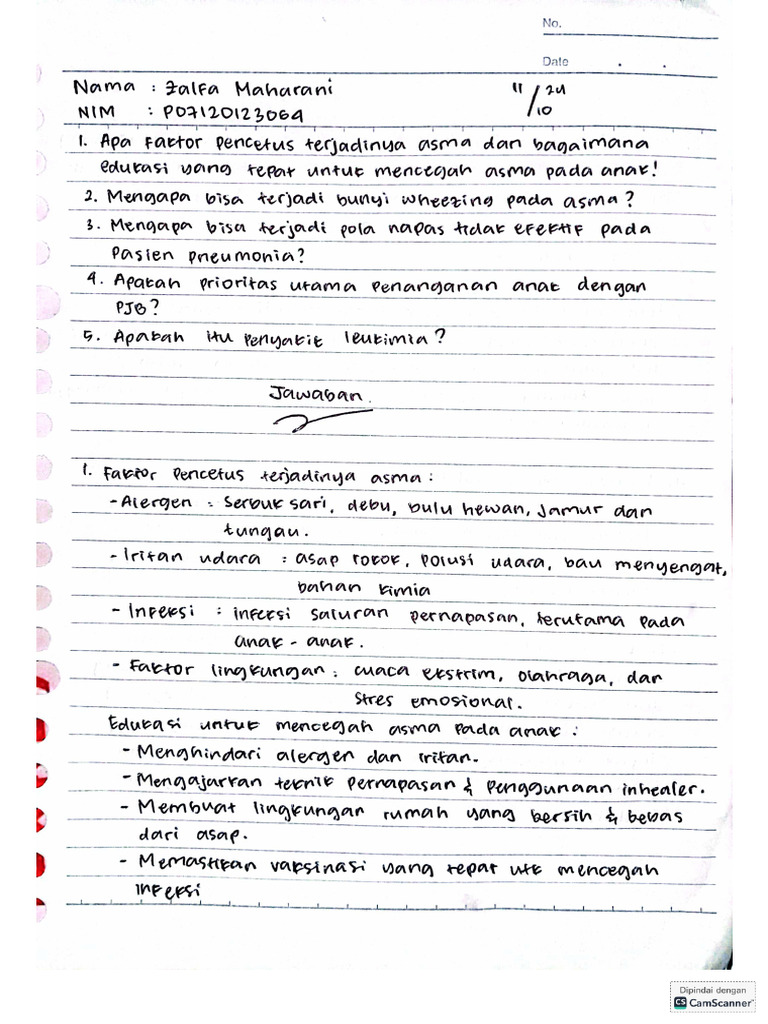 No.
Date . .
Nama : Zalfa Maharani 11/24
NIM : P07120123064 /10
1. Apa Faktor pencetus terjadinya asma dan bagaimana
edukasi yang tepat untuk mencegah asma pada anak!
2. Mengapa bisa terjadi bunyi wheezing pada asma?
3. Mengapa bisa terjadi pola napas tidak efektif pada
pasien pneumonia?
4. Apakah prioritas utama penanganan anak dengan
PJB?
5. Apakah itu penyakit leukimia?
Jawaban.
1. Faktor pencetus terjadinya asma :
- Alergen : Serbuk sari, debu, bulu hewan, jamur dan
tungau.
- Iritan udara : asap rokok, polusi udara, bau menyengat,
bahan kimia
- Infeksi : infeksi saluran pernapasan, terutama pada
anak - anak.
- Faktor lingkungan : cuaca ekstrim, olahraga, dan
stres emosional.
Edukasi untuk mencegah asma pada anak :
- Menghindari alergen dan iritan.
- Mengajarkan teknik pernapasan & penggunaan inhealer.
- Membuat lingkungan rumah yang bersih & bebas
dari asap.
- Memastikan vaksinasi yang tepat utk mencegah
infeksi
Dipindai dengan
CS CamScanner